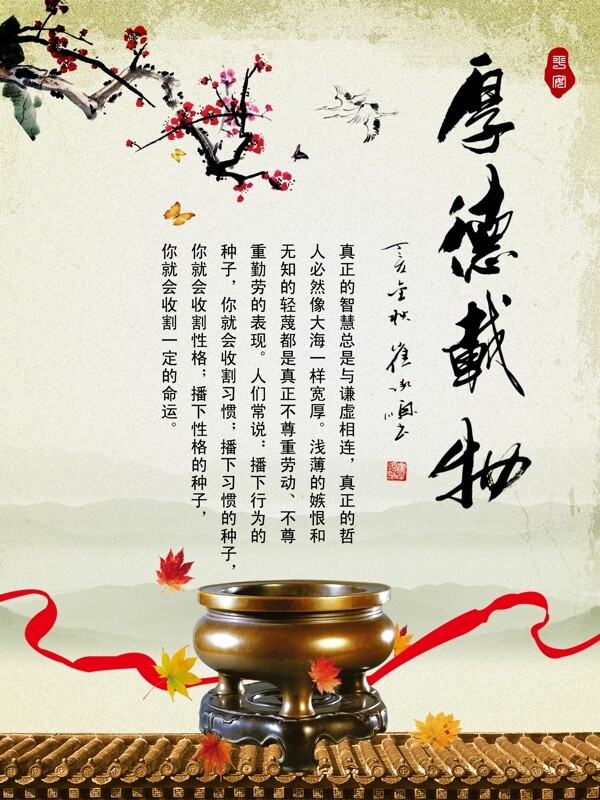 厚德載物
丁亥金秋
真正的智慧总是与谦虚相连，真正的哲
人必然像大海一样宽厚。浅薄的嫉恨和
无知的轻蔑都是真正不尊重劳动、不尊
重勤劳的表现。人们常说：播下行为的
种子，你就会收割习惯；播下习惯的种子，
你就会收割性格；播下性格的种子，
你就会收割一定的命运。